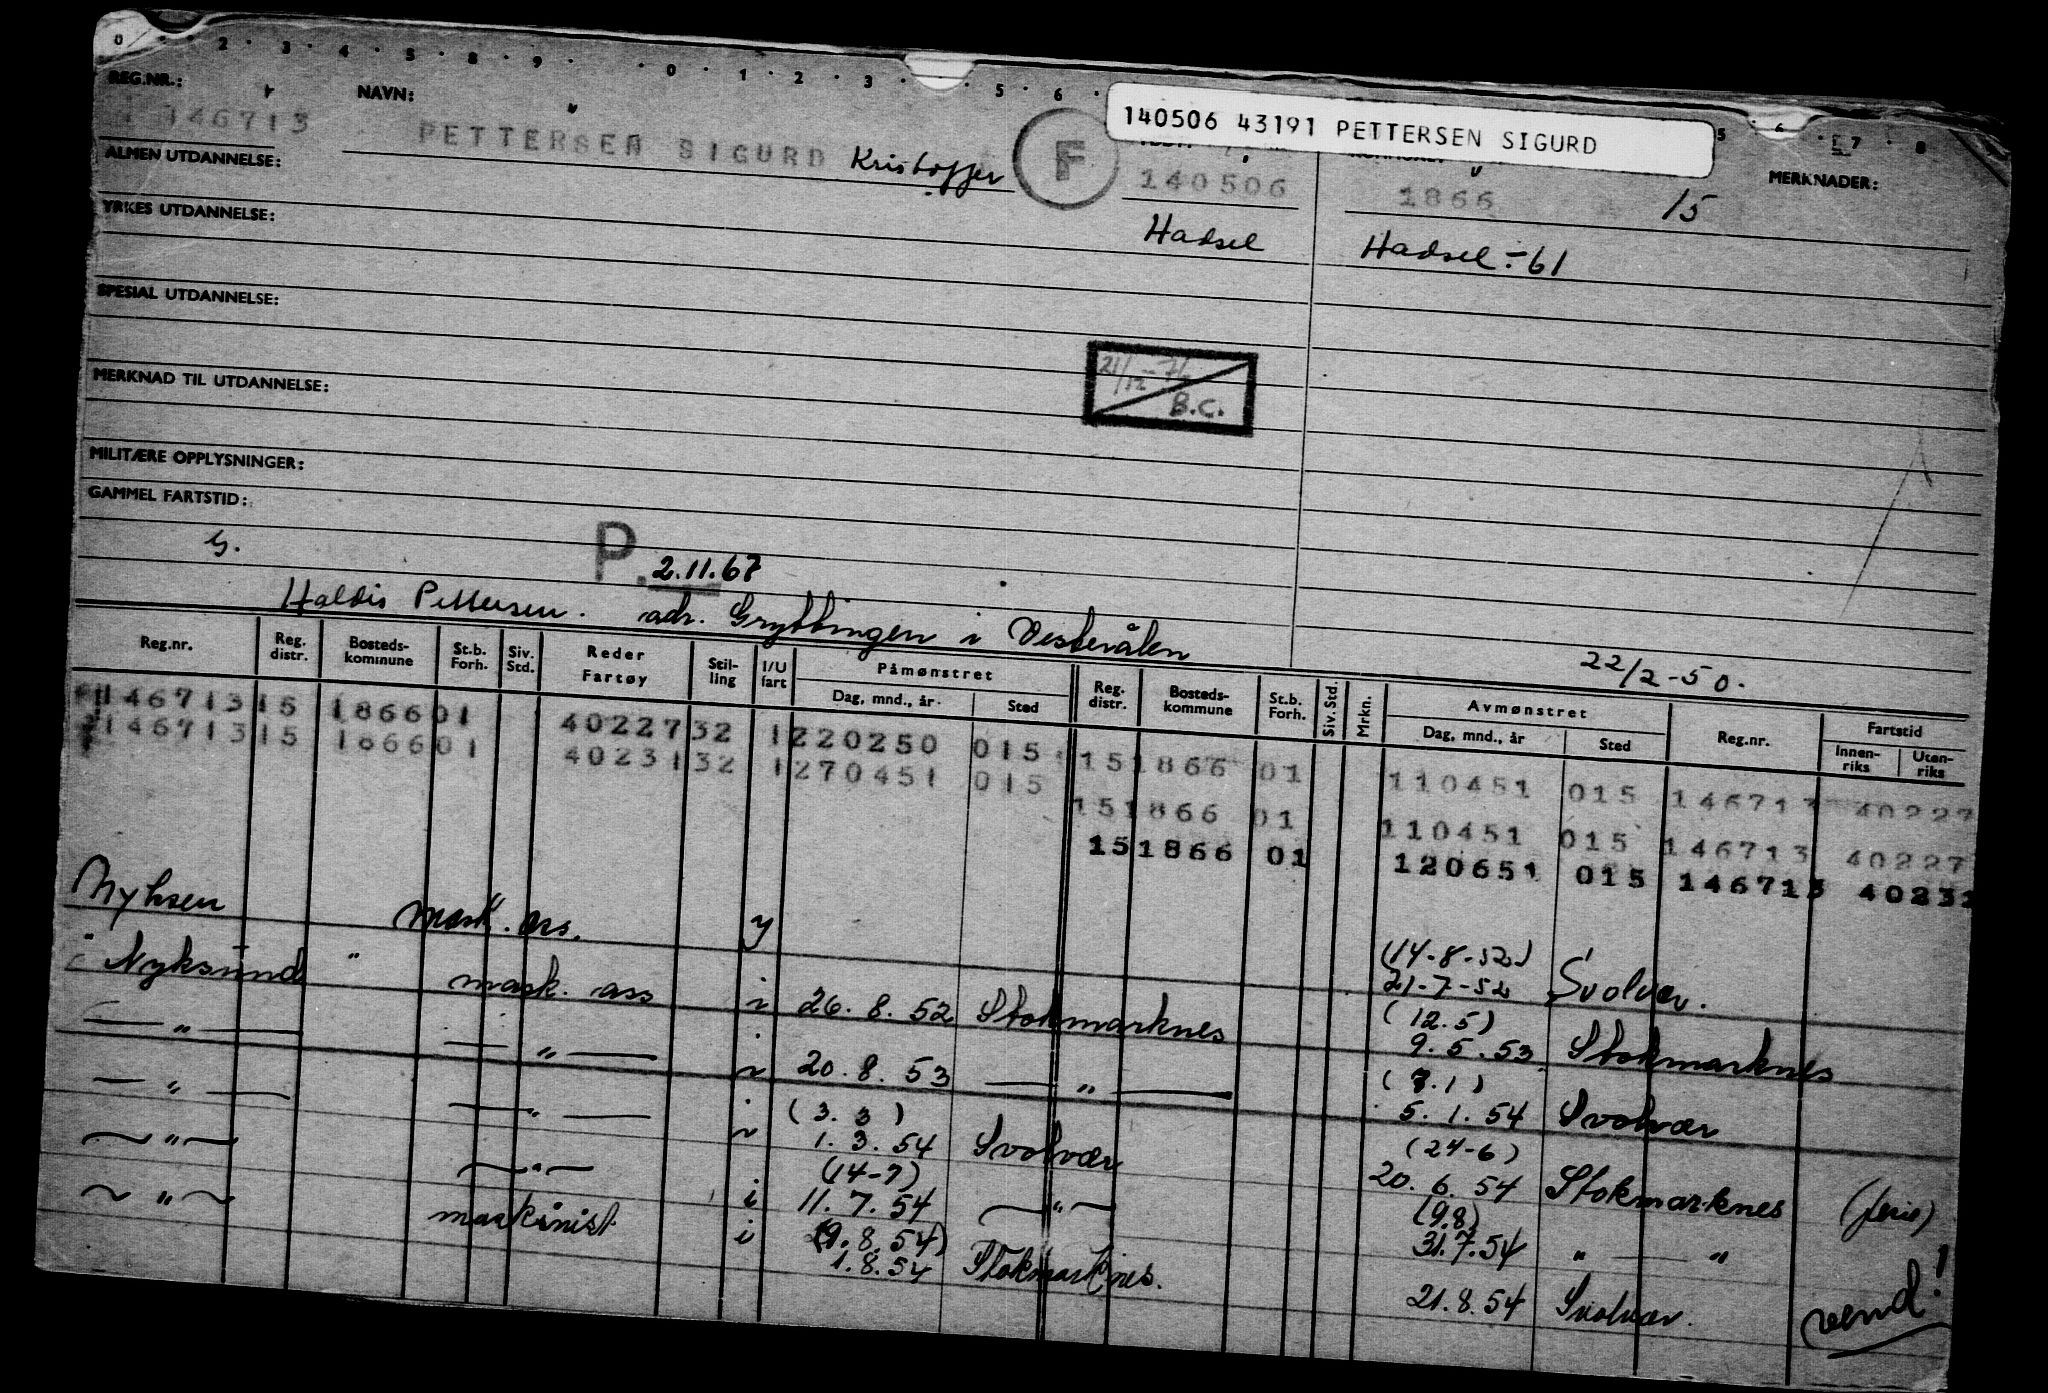 0 · · 2 · 3 · 4 · 5 · 8 · 9 · · 0 · 1 · 2 · 3 · · 5 · 6 · 5 · 6 · 7 · 8
REG.NR.: NAVN: 140506 43191 PETTERSEN SIGURD MERKNADER:
146713 PETTERSEN SIGURD Kristoffer F 140506 1866 15
ALMEN UTDANNELSE:
YRKES UTDANNELSE: Hadsel Hadsel -61
SPESIAL UTDANNELSE:
21/12-76
B.C.
MERKNAD TIL UTDANNELSE:
MILITÆRE OPPLYSNINGER:
GAMMEL FARTSTID:
G. P. 2.11.67
Haldis Pettersen. adr. Gryttingen i Vesterålen 22/2-50.
Reg.nr. Reg. distr. Bosteds-kommune St.b. Forh. Siv. Std. Reder Fartøy Stil-ling I/U fart Påmønstret Dag, mnd., år Sted Reg. distr. Bosteds-kommune St.b. Forh. Siv. Std. Mrkn. Avmønstret Dag, mnd., år Sted Reg.nr. Fartstid Innen-riks Uten-riks
146713 15 1866 01 40227 32 1 220250 015 15 1866 01 110451 015 146713 40227
146713 15 1866 01 40231 32 1 270451 015 15 1866 01 110451 015 146713 40227
15 1866 01 120651 015 146713 40231
Nyksen mask. ass. y (14-8-52)
21-7-52 Svolvær.
" Nyksund " mask. ass i 26. 8. 52 Stokmarknes (12.5)
9. 5. 53 Stokmarknes
— " — — " — i 20. 8. 53 — " — (7.1)
5. 1. 54 Svolvær
— " — — " — i (3. 3)
1. 3. 54 Svolvær (24-6)
20. 6. 54 Stokmarknes (ferie)
— " — — " — i (14-7)
11. 7. 54 — " — (9.8)
31.7.54 " — "
— " — maskinist i (9. 8. 54)
1.8.54 Stokmarknes. 21.8.54 Svolvær.
vend!